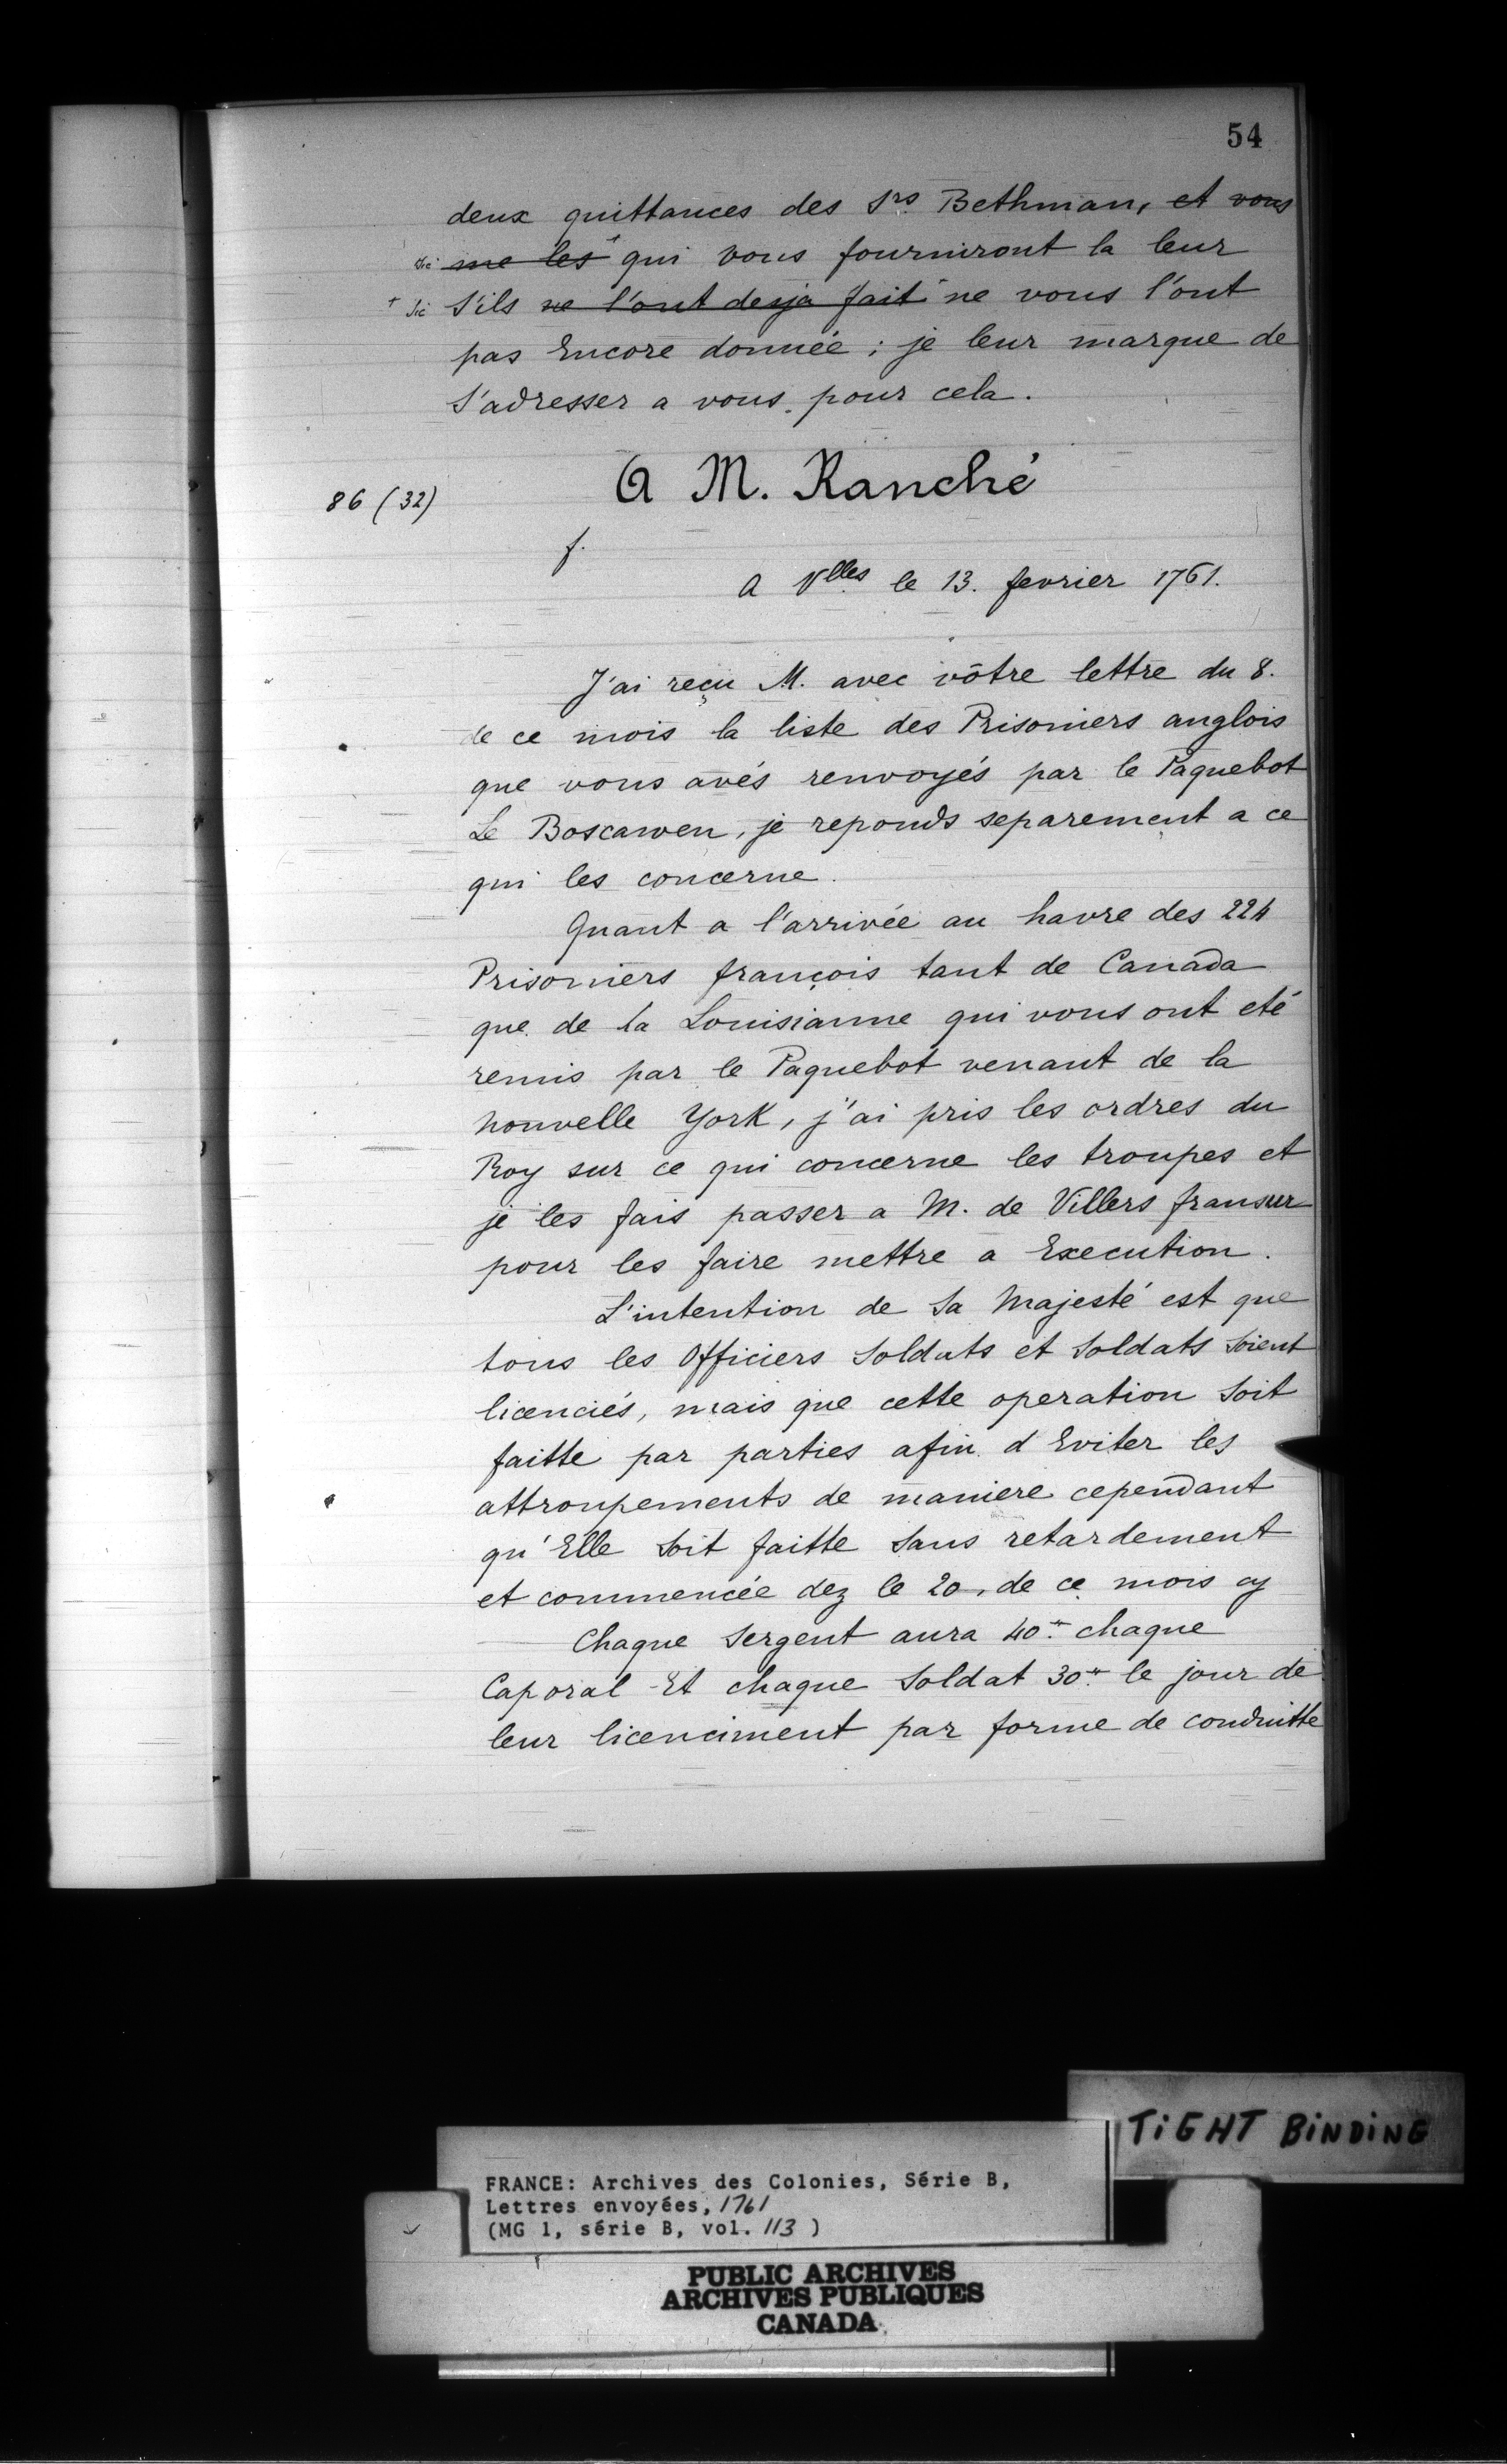 54
deux quittances des Srs Bethman, et vous
sic me les qui vous fourniront la leur
+ sic S'ils ne l'ont desja fait ne vous l'ont
pas Encore donnée ; je leur marque de
S'adresser a vous pour cela.
86 (32)
A M. Ranché
f.
A Vlles le 13. fevrier 1761.
J'ai reçu M. avec vôtre lettre du 8.
de ce mois la liste des Prisoniers anglois
que vous avés renvoyés par le Paquebot
Le Boscawen, je reponds separement a ce
qui les concerne.
Quant a l'arrivée au havre des 224
Prisoniers françois tant de Canada
que de la Louisianne qui vous ont eté
remis par le Paquebot venant de la
nouvelle York, j'ai pris les ordres du
Roy sur ce qui concerne les troupes et
je les fais passer a M. de Villers fransur
pour les faire mettre a Execution.
L'intention de Sa Majesté est que
tous les Officiers Soldats et Soldats soient
licenciés, mais que cette operation Soit
faitte par parties afin d Eviter les
attroupements de maniere cependant
qu'Elle Soit faitte Sans retardement
et commencée dez le 20. de ce mois cy
Chaque Sergent aura 40.tt chaque
Caporal Et chaque Soldat 30.tt le jour de
leur licenciment par forme de conduitte
TiGHT BiNDiNG
FRANCE: Archives des Colonies, Série B,
Lettres envoyées, 1761
(MG 1, série B, vol. 113 )
PUBLIC ARCHIVES
ARCHIVES PUBLIQUES
CANADA